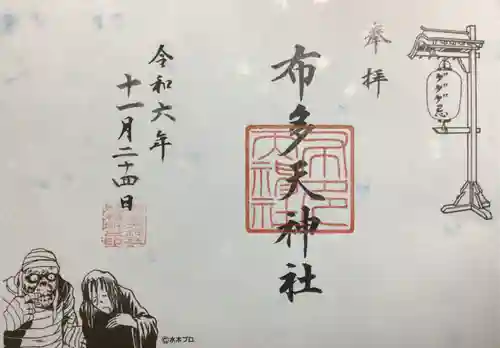 奉拝
ゲゲゲ忌
布多天神社
令和六年
十一月二十四日
©水木プロ